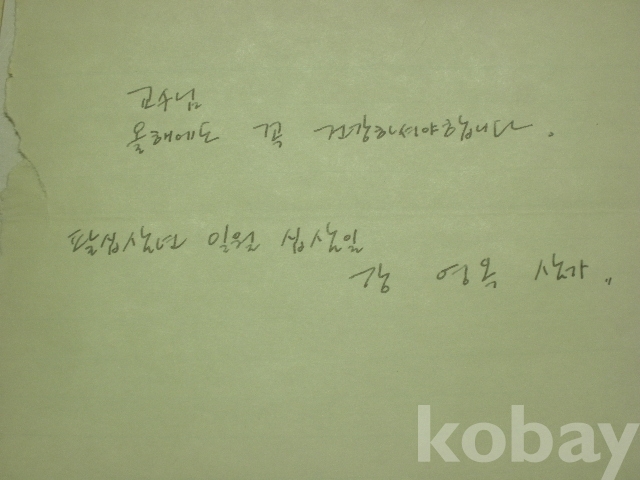 교수님
올해에도 꼭 건강하셔야합니다.
팔십삼년 일월 십삼일
강 영옥 삼가〃
kobay